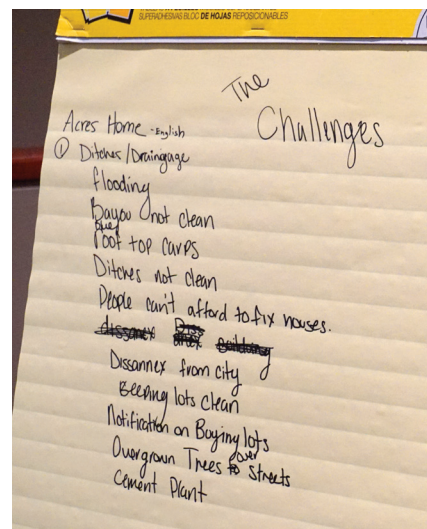 SUPERADHESIVAS BLOC DE HOJAS REPOSICIONABLES
The
Challenges
Acres Home - English
① Ditches/Draingage
flooding
Bayou not clean
Roof top carps
Ditches not clean
People can't afford to fix houses.
Dissannex from city
Keeping lots clean
Notification on Buying lots
Overgrown Trees over Streets
Cement Plant